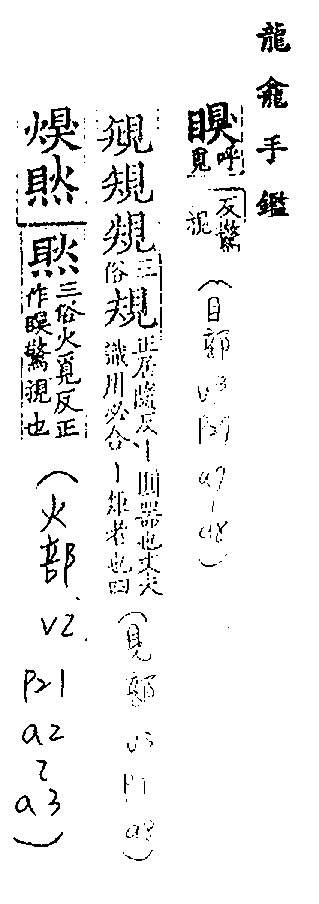 龍龕手鑑
瞁呼覓反驚視(目部 v3 P29 a7~a8)
三俗規正居隨反丨圓器也丈夫識用必合丨矩者也四(見部 v3 P1 a8)
三俗火覓反正作瞁驚視也(火部 v2 P21 a2~a3)